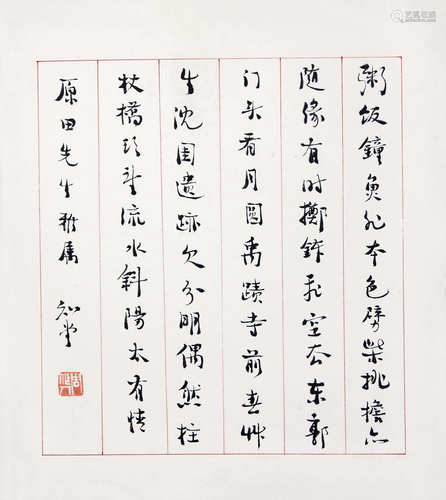 粥饭鐘魚非本色劈柴挑擔亦
随缘有时擲鉢飛空去东郭
门头看月圓禹蹟寺前春艸
生沈園遺跡欠分明偶然拄
杖橋頭望流水斜陽太有情
原田先生雅属 知堂